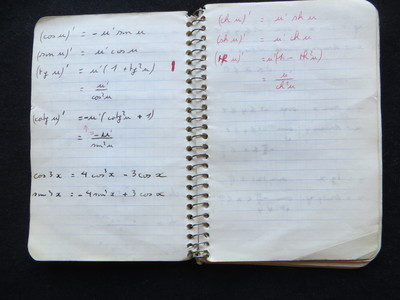 (cos u)' = -u' sin u
(sin u)' = u' cos u
(tg u)' = u' (1 + tg²u)
= u'/cos²u
(cotg u)' = -u' (cotg²u + 1)
= -u'/sin²u
cos 3x = 4 cos³x - 3 cos x
sin 3x = -4 sin³x + 3 cos x
(ch u)' = u' sh u
(sh u)' = u' ch u
= u'/ch²u